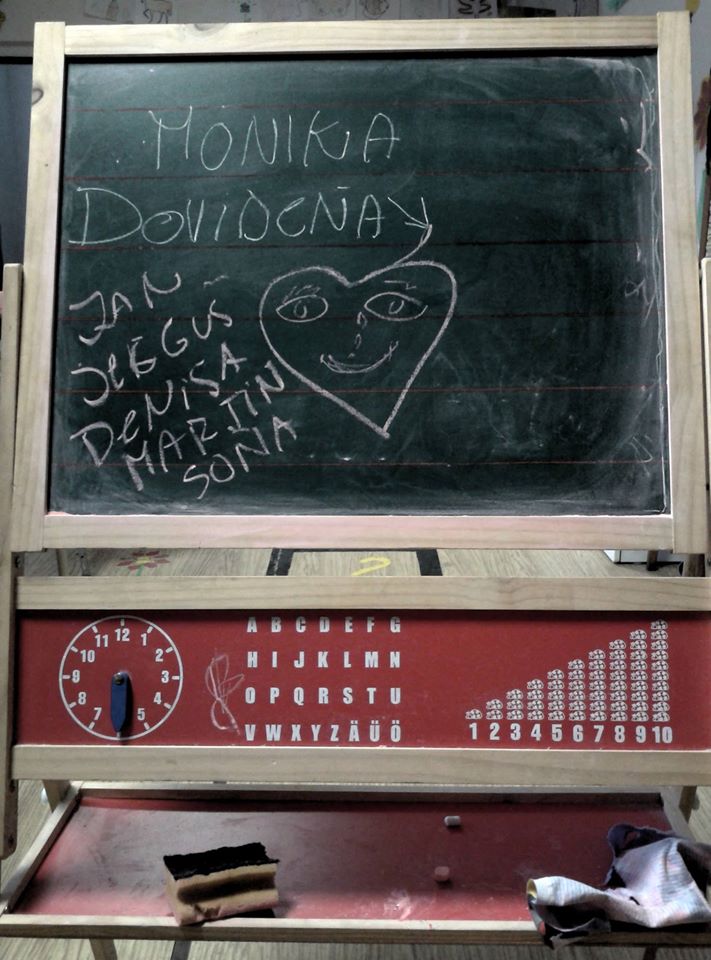 MONIKA
DOVIDEŇA
JAN
DENISA
MARTIN
SOŇA
12
11 1
10 2
9 3
8 4
7 5
A B C D E F G
H I J K L M N
O P Q R S T U
V W X Y Z Ä Ü Ö
1 2 3 4 5 6 7 8 9 10